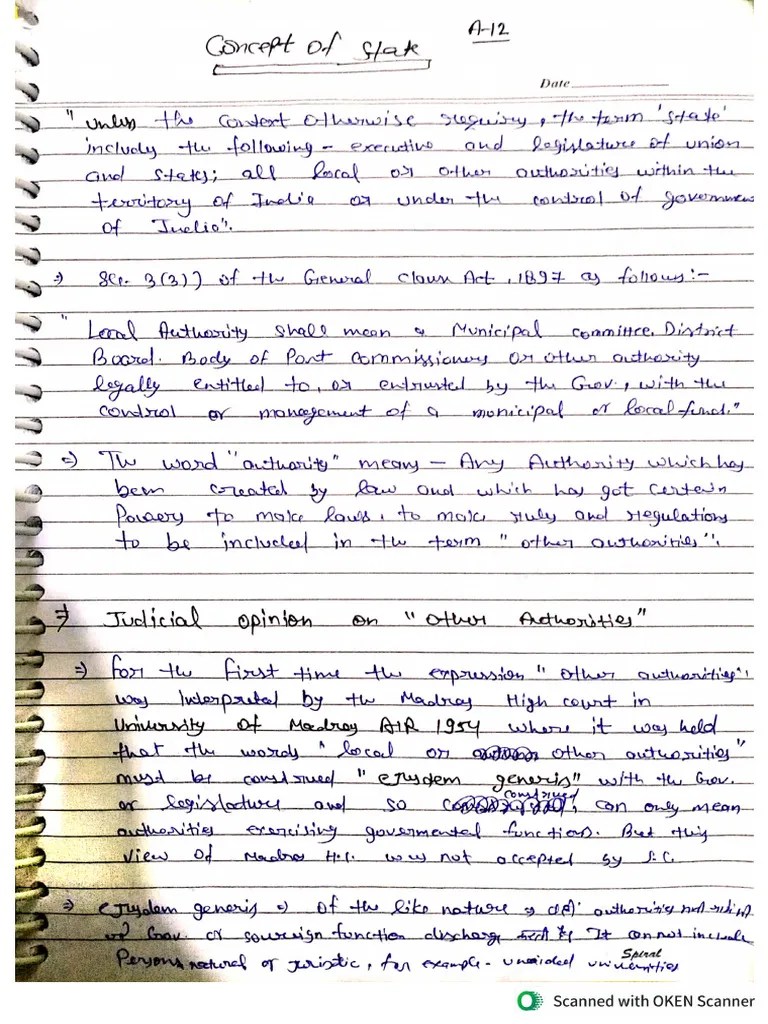 A-12
Concept Of State
Date
"unless the context otherwise requiry, the term 'state'
includy the following - executive and legislature of union
and states; all local or other authorities within the
territory of India or under the control of governmen
of India".
⇒ Sec. 3(3)) of the General Claun Act, 1897 as follows:-
" Local Authority shall mean a Municipal committee, District
Board. Body of Port Commissioners or other authority
legally entitled to, or entrusted by the Gov., with the
control or management of a municipal or local fund."
⇒ The word "authority" means - Any Authority which has
been created by law and which has got certain
Powers to make laws, to make ruly and regulations
to be included in the term "other authorities".
⇒ Judicial opinion on "Other Authorities"
⇒ for the first time the expression "other authorities"
was Interpreted by the Madras High court in
University Of Madras AIR 1954 where it was held
that the words "local or other authorities"
must be construed "ejusdem generis" with the Gov.
or legislature and so construed, can only mean
authorities exercising govermental functions. But this
view of Madras H.C. was not accepted by S.C.
⇒ ejusdem generis ⇒ Of the like nature ⇒ authorities
or Gov. or sovereign function discharge करती है। It can not include
Persons, natural or juristic, for example - unaided universities
Spiral
Scanned with OKEN Scanner